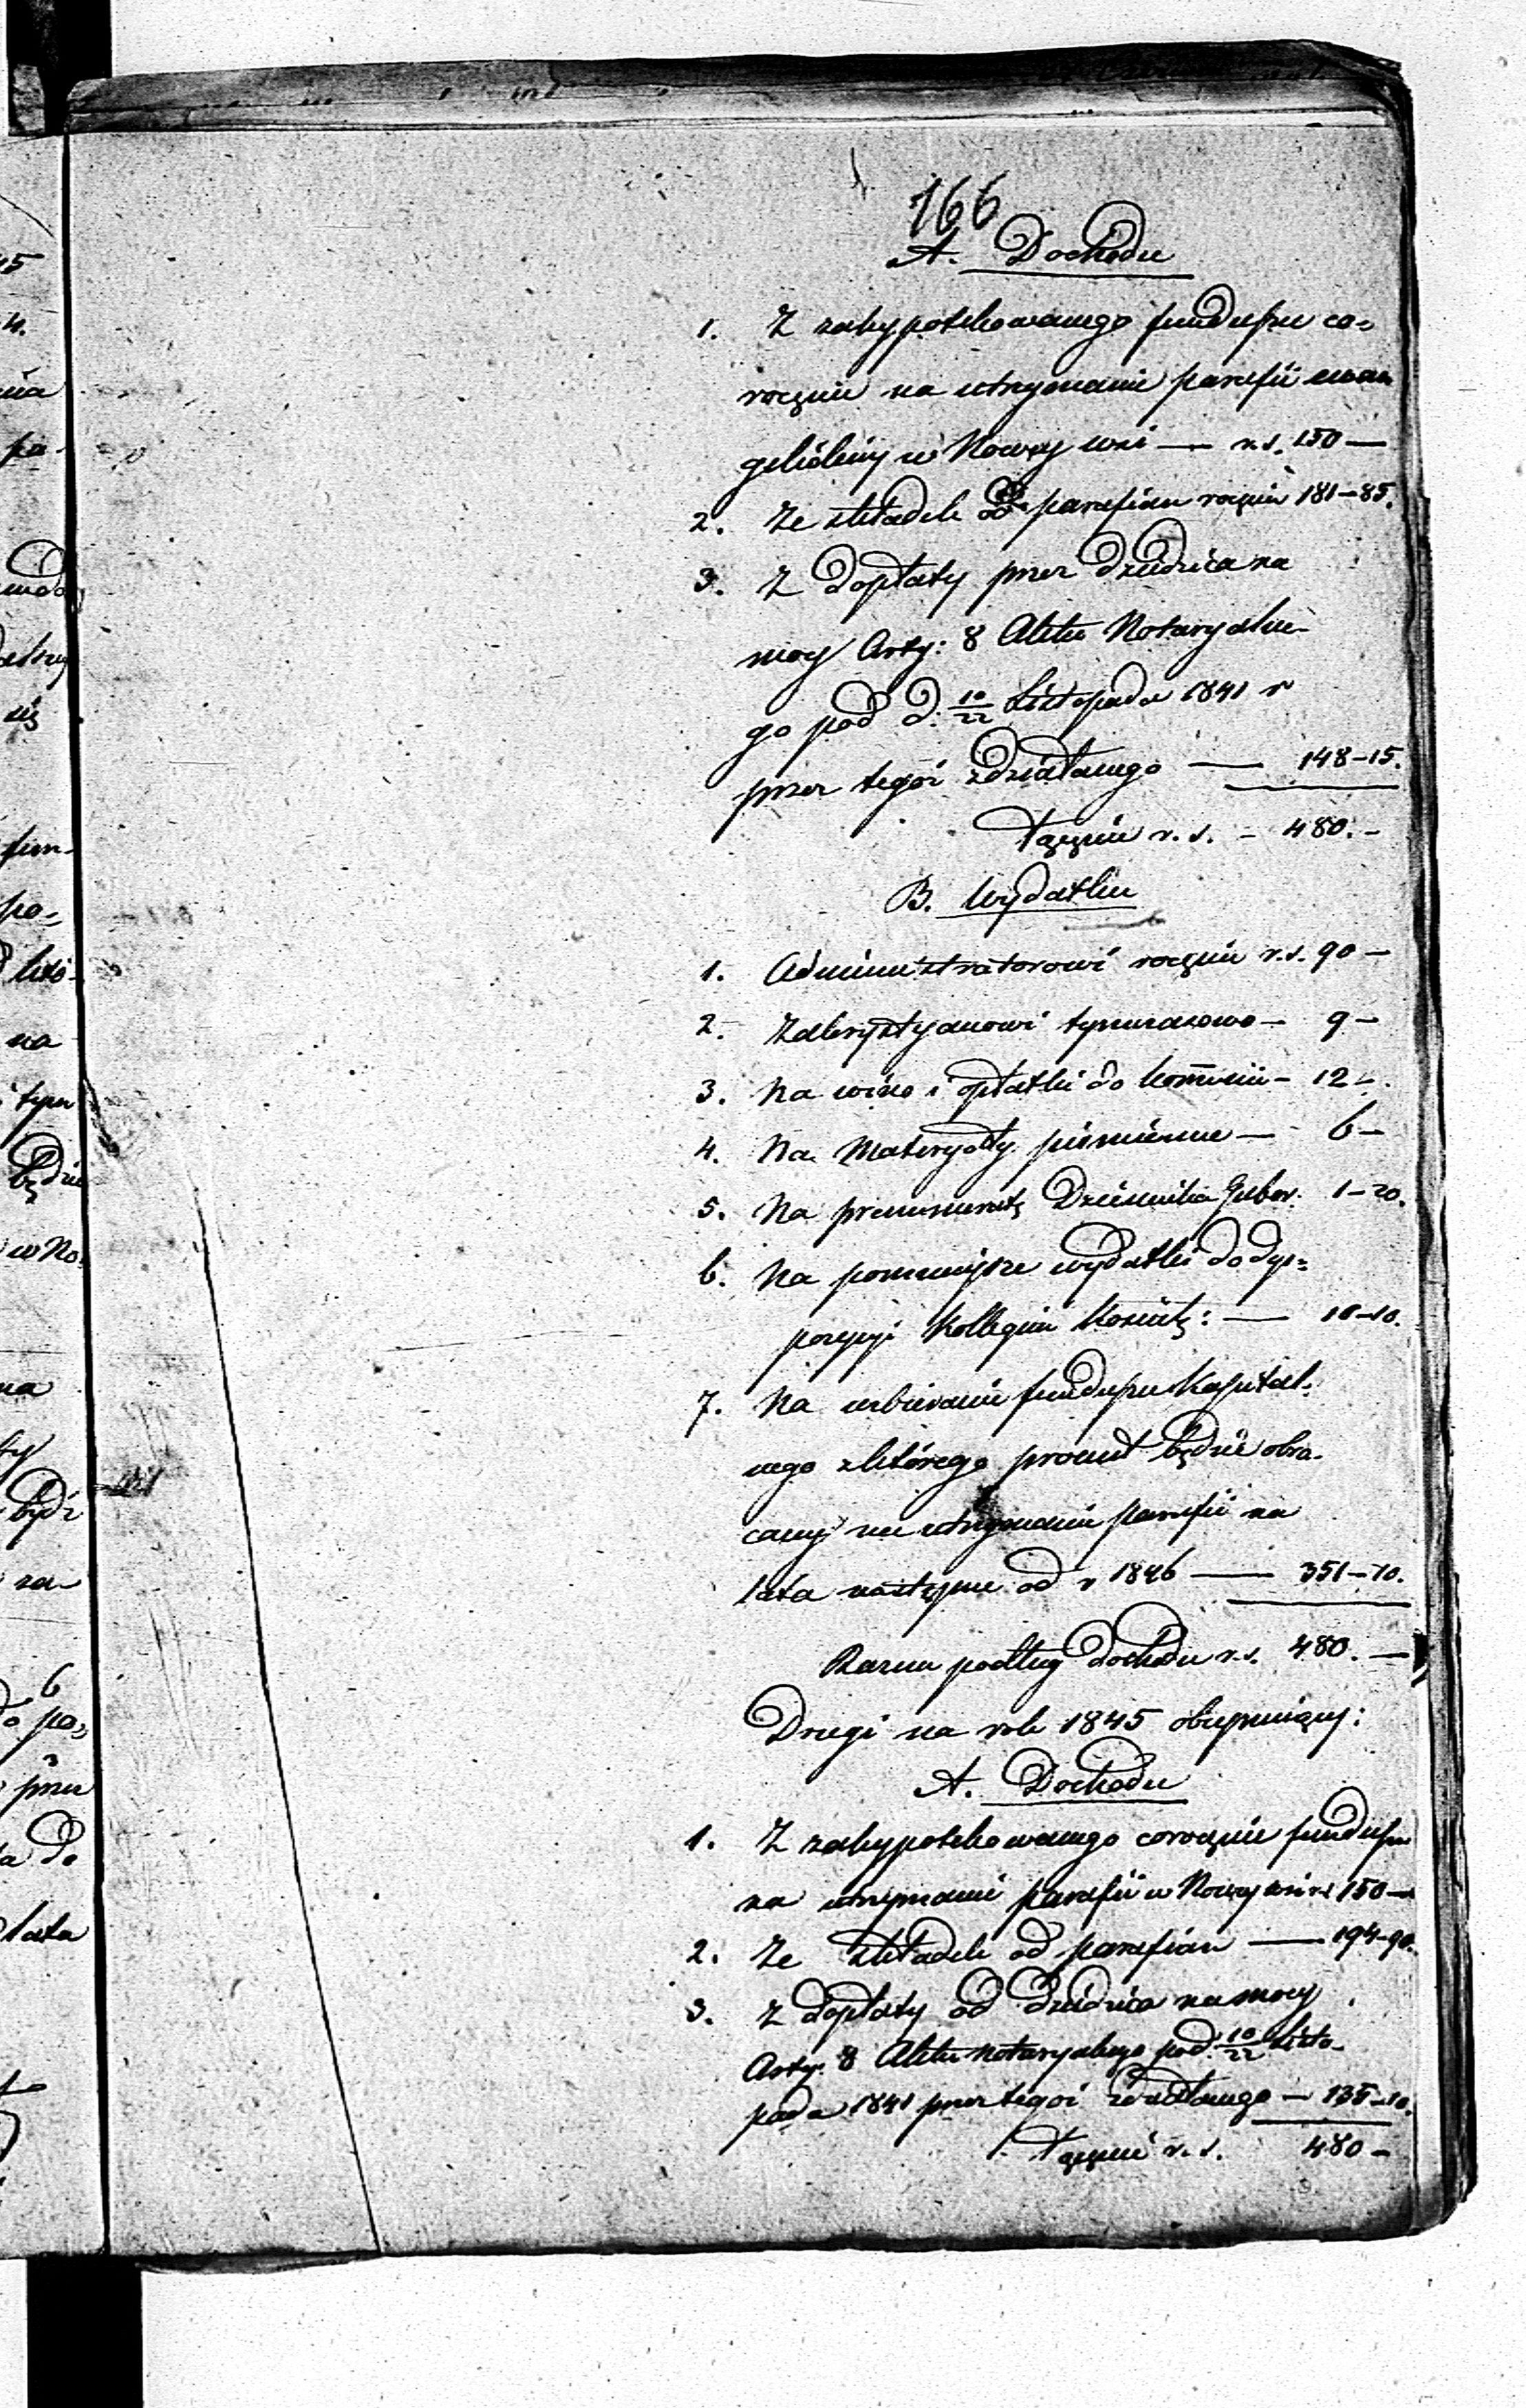 166
A. Dochodu
1. Z zahypotekowanego funduszu co=
rocznie na utrzymanie parafii ewan
gelickiej w Nowej wsi — r.s. 150 —
2. Ze składek od parafian rocznie 181–85.
3. Z dopłaty przez dziedzica na
mocy Arty: 8 Aktu Notaryalne-
go pod d. 10/22 Listopada 1841 r
przez tegoż zdziałanego — 148–15.
Łącznie r. s. – 480. –
B. Wydatku
1. Administratorowi rocznie r.s. 90 –
2. Zakrystyanowi tymczasowo – 9 –
3. Na wino i opłatki do komunii – 12 –.
4. Na Materyały piśmienne — 6 –
5. Na prenumeratę Dziennika Guber. 1–20.
6. Na pomniejsze wydatki do dys=
pozycji Kollegium Kościel: — 10–10.
7. Na uzbieranie funduszu Kapital=
nego z którego procent będzie obra-
cany na utrzymanie parafii na
lata następne od r 1846 — 351–70.
Razem podług dochodu r.s. 480. —
Drugi na rok 1845 obejmujący:
A. Dochodu
1. Z zahypotekowanego corocznie funduszu
na utrzymanie parafii w Nowej wsi rs 150 —
2. Ze składek od parafian — 194–90.
3. Z dopłaty od dziedzica na mocy
Arty. 8 Aktu notaryalnego pod 10/22 Listo-
pada 1841 przez tegoż zdziałanego — 135–10.
Łącznie r. s. 480 –